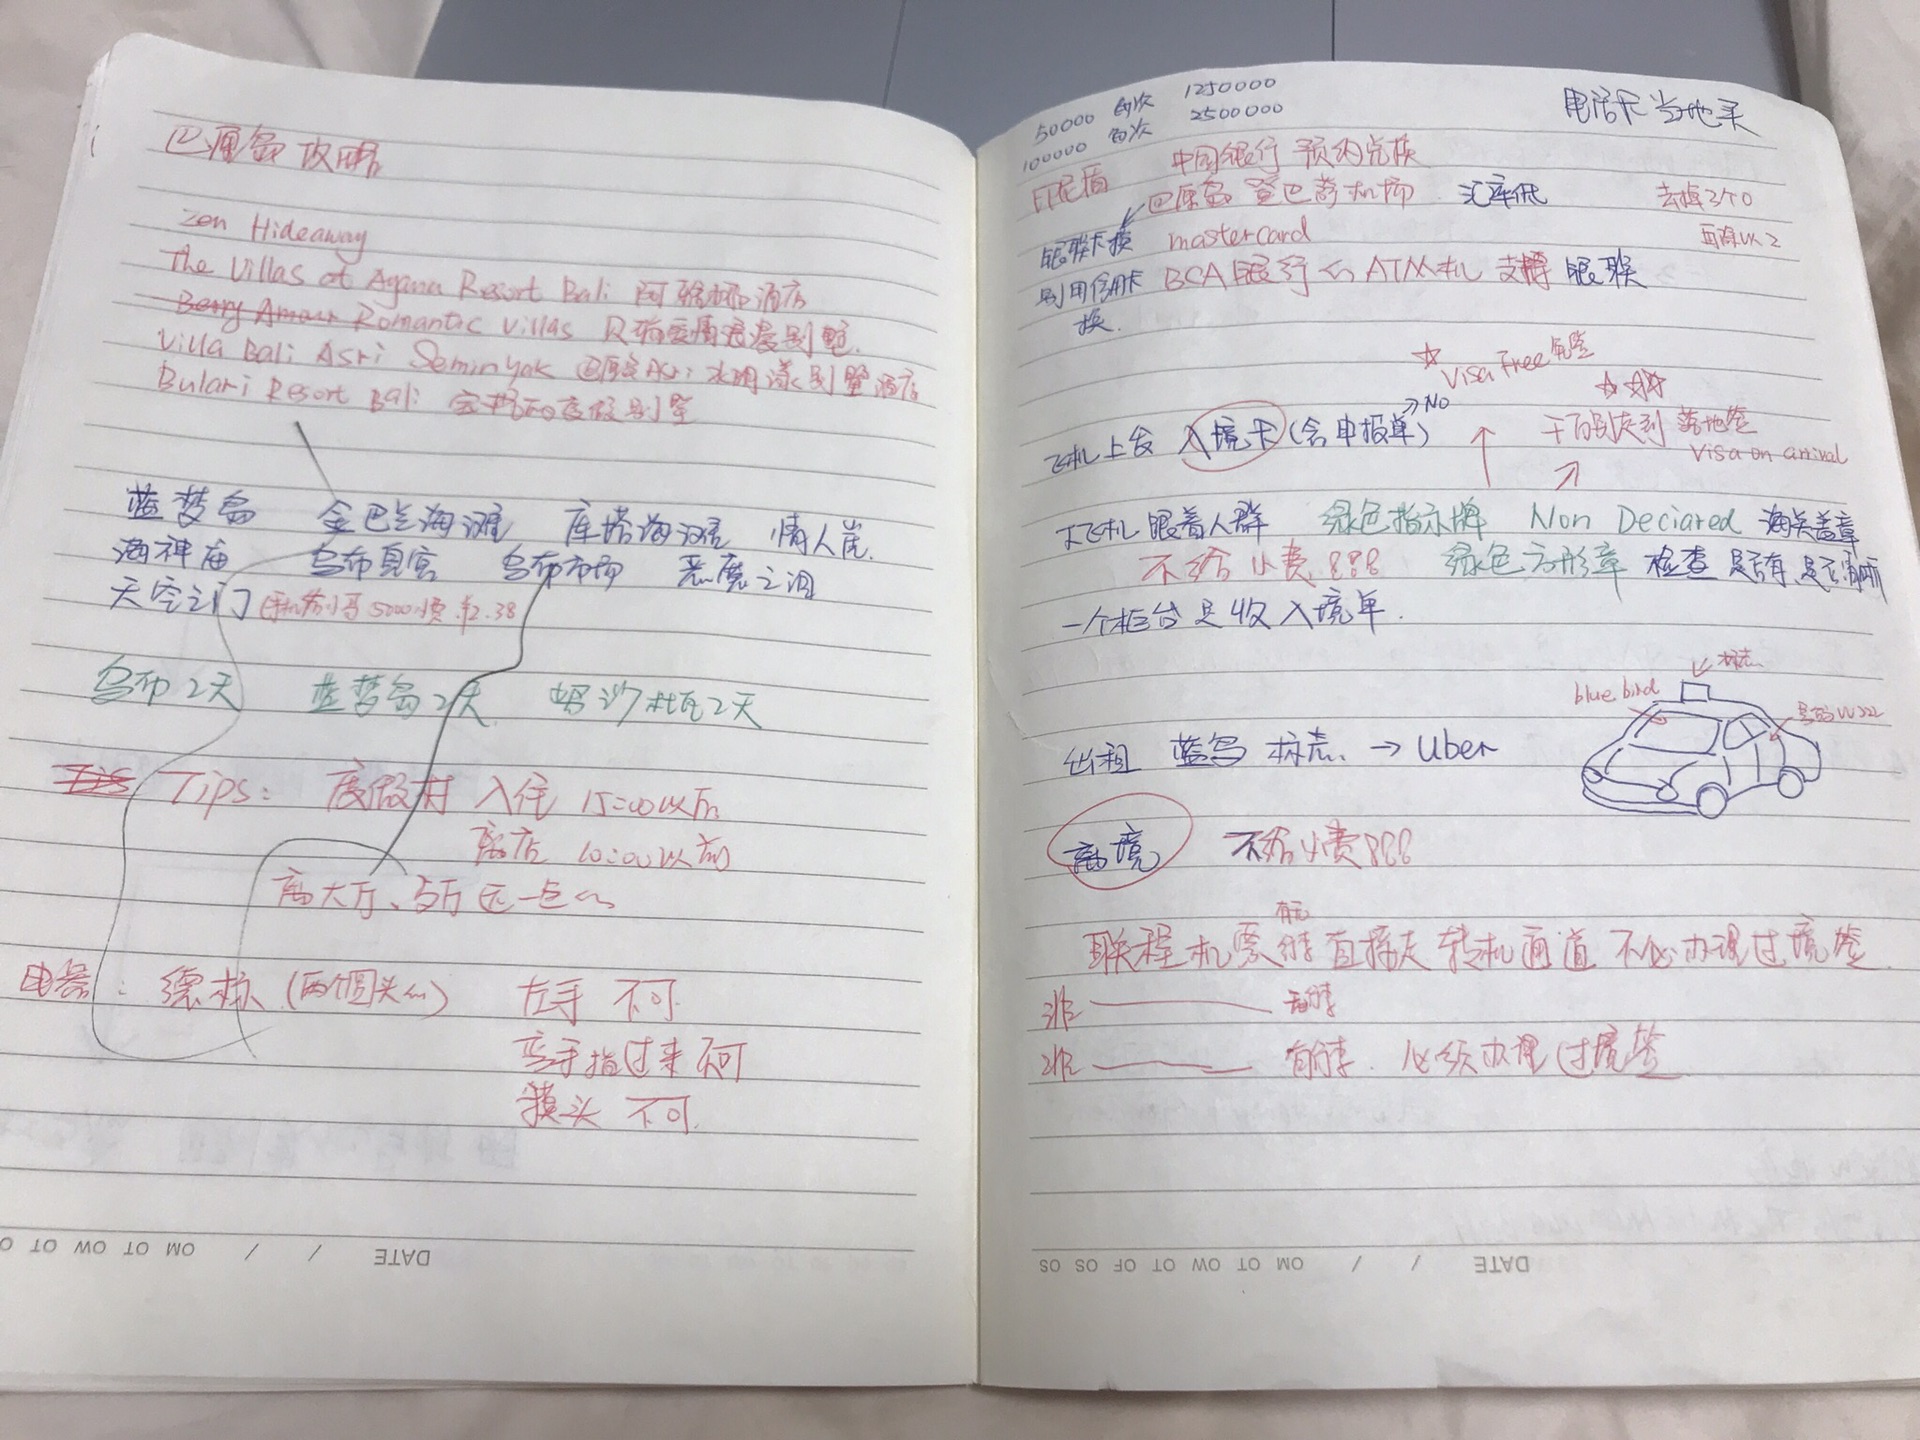 巴厘岛 攻略
Zen Hideaway
The Villas at Ayana Resort Bali 阿雅娜酒店
Berry Amour Romantic Villas 贝瑞爱情浪漫别墅.
Villa Bali Asri Seminyak 巴厘岛Asri 水明漾别墅酒店
Bulari Resort Bali 度假别墅
蓝梦岛 金巴兰海滩 库塔海滩 情人崖.
海神庙 乌布皇宫 乌布市场 恶魔之泪
天空之门 5000小费 ¥2.38
乌布2天 蓝梦岛2天 努沙杜瓦2天
Tips: 度假村 入住 15:00以后
离店 10:00以前
离大厅、 远一点的
电器: 德标 (两个圆头的) 左手 不可.
弯手指过来 不可
摸头 不可.
50000 每次 1250000
100000 每次 2500000
电话卡 当地买
印尼盾 中国银行 预约兑换
巴厘岛 登巴萨机场 汇率低 去掉3个0
银联卡换 mastercard 再除以2
别用信用卡 BCA银行的ATM机 支持 银联
换.
☆ Visa Free 免签
飞机上发 入境卡 (含申报单) →No
落地签
Visa on arrival
下飞机 跟着人群 绿色指示牌 Non Deciared 海关盖章
不给 小费!!! 绿色方形章 检查 是否有,是否清晰
一个柜台 只收 入境单.
blue bird 标志
号码
出租 蓝鸟 标志. → Uber
离境 不给小费!!!
有无
联程机票 行李 直接走 转机通道 不必办理过境签.
非 —— 无行李
非 —— 有行李. 必须办理过境签
DATE / / OM OT OW OT O
DATE / / OM OT OW OT OF OS OS